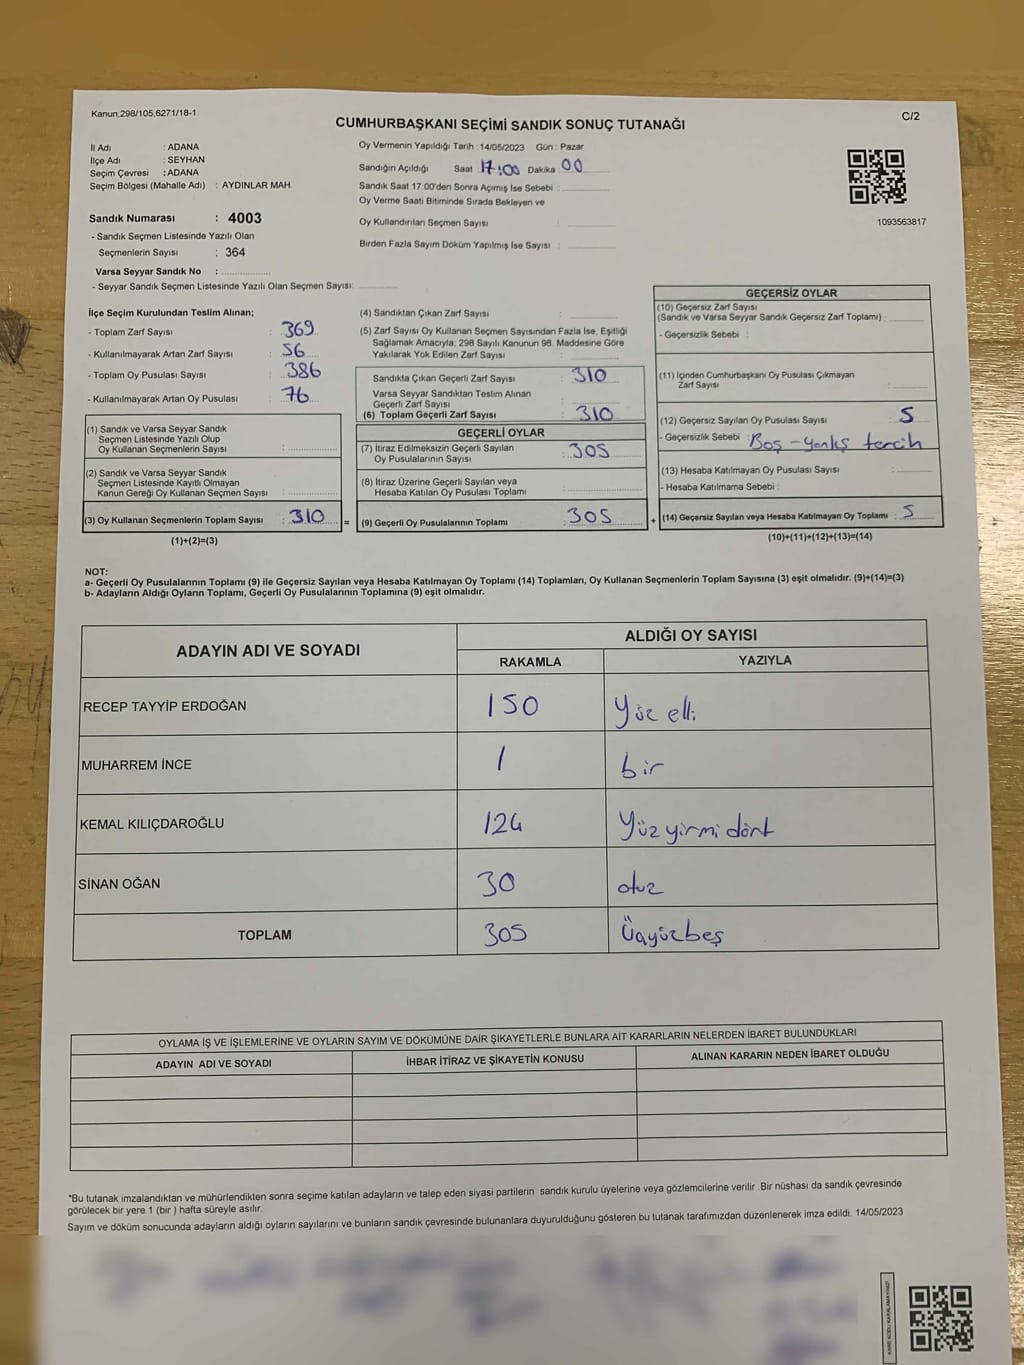 Kanun,298/105,6271/18-1
C/2
CUMHURBAŞKANI SEÇİMİ SANDIK SONUÇ TUTANAĞI
İl Adı : ADANA
İlçe Adı : SEYHAN
Seçim Çevresi : ADANA
Seçim Bölgesi (Mahalle Adı) : AYDINLAR MAH.
Sandık Numarası : 4003
- Sandık Seçmen Listesinde Yazılı Olan
Seçmenlerin Sayısı : 364
Varsa Seyyar Sandık No :
- Seyyar Sandık Seçmen Listesinde Yazılı Olan Seçmen Sayısı:
Oy Vermenin Yapıldığı Tarih : 14/05/2023 Gün : Pazar
Sandığın Açıldığı Saat 17:00 Dakika 00
Sandık Saat 17.00'den Sonra Açımış İse Sebebi :
Oy Verme Saati Bitiminde Sırada Bekleyen ve
Oy Kullandırılan Seçmen Sayısı :
Birden Fazla Sayım Döküm Yapılmış İse Sayısı :
1093563817
İlçe Seçim Kurulundan Teslim Alınan;
- Toplam Zarf Sayısı : 369
- Kullanılmayarak Artan Zarf Sayısı : 56
- Toplam Oy Pusulası Sayısı : 386
- Kullanılmayarak Artan Oy Pusulası : 76
(1) Sandık ve Varsa Seyyar Sandık
Seçmen Listesinde Yazılı Olup
Oy Kullanan Seçmenlerin Sayısı :
(2) Sandık ve Varsa Seyyar Sandık
Seçmen Listesinde Kayıtlı Olmayan
Kanun Gereği Oy Kullanan Seçmen Sayısı :
(3) Oy Kullanan Seçmenlerin Toplam Sayısı : 310 =
(1)+(2)=(3)
(4) Sandıktan Çıkan Zarf Sayısı :
(5) Zarf Sayısı Oy Kullanan Seçmen Sayısından Fazla İse, Eşitliği
Sağlamak Amacıyla; 298 Sayılı Kanunun 98. Maddesine Göre
Yakılarak Yok Edilen Zarf Sayısı :
Sandıkta Çıkan Geçerli Zarf Sayısı : 310
Varsa Seyyar Sandıktan Teslim Alınan
Geçerli Zarf Sayısı :
(6) Toplam Geçerli Zarf Sayısı : 310
GEÇERLİ OYLAR
(7) İtiraz Edilmeksizin Geçerli Sayılan
Oy Pusulalarının Sayısı : 305
(8) İtiraz Üzerine Geçerli Sayılan veya
Hesaba Katılan Oy Pusulası Toplamı :
(9) Geçerli Oy Pusulalarının Toplamı : 305 +
GEÇERSİZ OYLAR
(10) Geçersiz Zarf Sayısı
(Sandık ve Varsa Seyyar Sandık Geçersiz Zarf Toplamı) :
- Geçersizlik Sebebi :
(11) İçinden Cumhurbaşkanı Oy Pusulası Çıkmayan
Zarf Sayısı :
(12) Geçersiz Sayılan Oy Pusulası Sayısı : 5
- Geçersizlik Sebebi : Boş - yanlış tercih
(13) Hesaba Katılmayan Oy Pusulası Sayısı :
- Hesaba Katılmama Sebebi :
(14) Geçersiz Sayılan veya Hesaba Katılmayan Oy Toplamı : 5
(10)+(11)+(12)+(13)=(14)
NOT:
a- Geçerli Oy Pusulalarının Toplamı (9) ile Geçersiz Sayılan veya Hesaba Katılmayan Oy Toplamı (14) Toplamları, Oy Kullanan Seçmenlerin Toplam Sayısına (3) eşit olmalıdır. (9)+(14)=(3)
b- Adayların Aldığı Oyların Toplamı, Geçerli Oy Pusulalarının Toplamına (9) eşit olmalıdır.
ADAYIN ADI VE SOYADI ALDIĞI OY SAYISI
RAKAMLA YAZIYLA
RECEP TAYYİP ERDOĞAN 150 Yüz elli
MUHARREM İNCE 1 bir
KEMAL KILIÇDAROĞLU 124 Yüz yirmi dört
SİNAN OĞAN 30 otuz
TOPLAM 305 Üçyüzbeş
OYLAMA İŞ VE İŞLEMLERİNE VE OYLARIN SAYIM VE DÖKÜMÜNE DAİR ŞİKAYETLERLE BUNLARA AİT KARARLARIN NELERDEN İBARET BULUNDUKLARI
ADAYIN ADI VE SOYADI İHBAR İTİRAZ VE ŞİKAYETİN KONUSU ALINAN KARARIN NEDEN İBARET OLDUĞU
*Bu tutanak imzalandıktan ve mühürlendikten sonra seçime katılan adayların ve talep eden siyasi partilerin sandık kurulu üyelerine veya gözlemcilerine verilir .Bir nüshası da sandık çevresinde
görülecek bir yere 1 (bir ) hafta süreyle asılır.
Sayım ve döküm sonucunda adayların aldığı oyların sayılarını ve bunların sandık çevresinde bulunanlara duyurulduğunu gösteren bu tutanak tarafımızdan düzenlenerek imza edildi. 14/05/2023